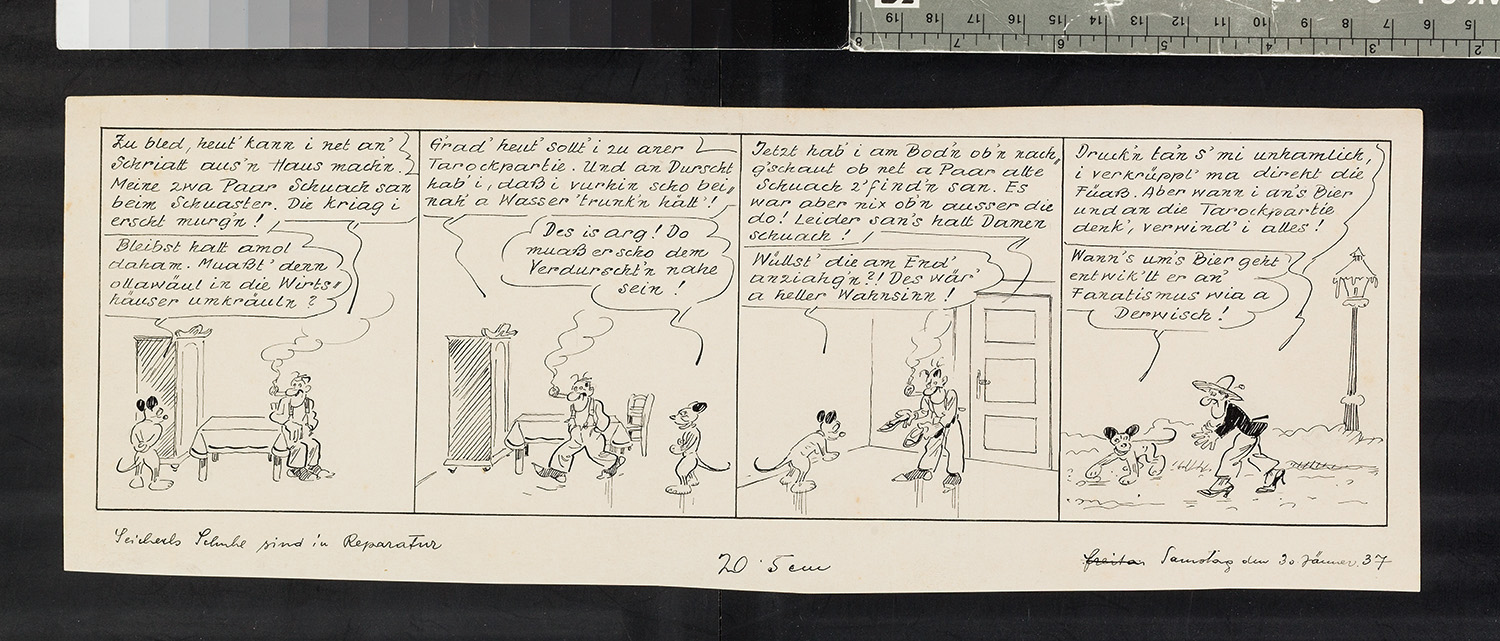 Zu bled, heut' kann i net an'
Schriatt aus'n Haus mach'n.
Meine zwa Paar Schuach san
beim Schuaster. Die kriag i
erscht murg'n!
Bleibst halt amol
daham. Muaßt' denn
ollawäul in die Wirts"
häuser umkräuln?
G'rad' heut' sollt' i zu aner
Tarockpartie. Und an Durscht
hab' i, daß i vurhin scho bei"
nah' a Wasser 'trunk'n hätt'!
Des is arg! Do
muaß er scho dem
Verdurscht'n nahe
sein!
Jetzt hab' i am Bod'n ob'n nach"
g'schaut ob net a Paar alte
Schuach z'find'n san. Es
war aber nix ob'n ausser die
do! Leider san's halt Damen
schuach!
Wüllst' die am End'
anziahg'n?! Des wär'
a heller Wahnsinn!
Druck'n ta'n s' mi unhamlich,
i verkrüppl' ma direkt die
Füaß. Aber wann i an's Bier
und an die Tarockpartie
denk', verwind' i alles!
Wann's um's Bier geht
entwik'lt er an'
Fanatismus wia a
Derwisch!
Seicherls Schuhe sind in Reparatur
20·5 cm
Freitag Samstag den 30. Jänner. 37
19 18 17 16 15 14 13 12 11 10 9 8 7 6 5
8 7 6 5 4 3 2